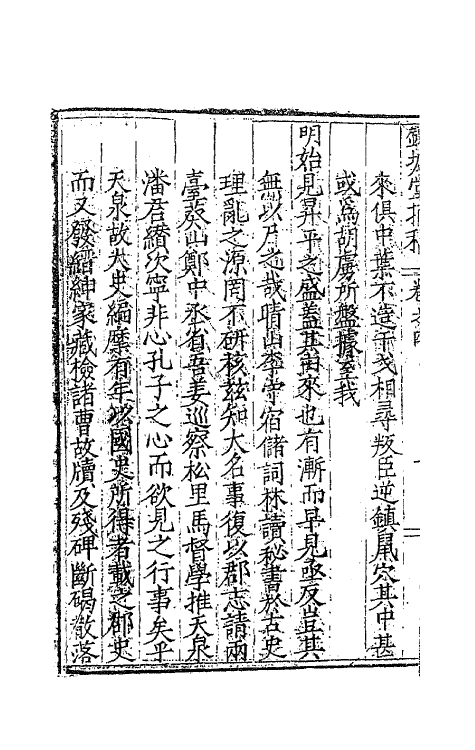 來俱中葉不逹干戈相尋叛臣逆鎮鼠穴其中甚
或爲胡虜所盤據至我
明始見昇平之盛蓋其由來也有漸而早見亟反豈其
無以乃之哉晴山李守宿儲詞林讀秘書於古史
理亂之源罔不研核茲知大名事復以郡志請兩
臺葵山鄭中丞省吾姜巡察松里馬督學推天泉
潘君纉次寧非心孔子之心而欲見之行事矣乎
天泉故太史編摩有年以國史所得者載之郡史
而又發縉紳家藏檢諸曹故牘及殘碑斷碣散落